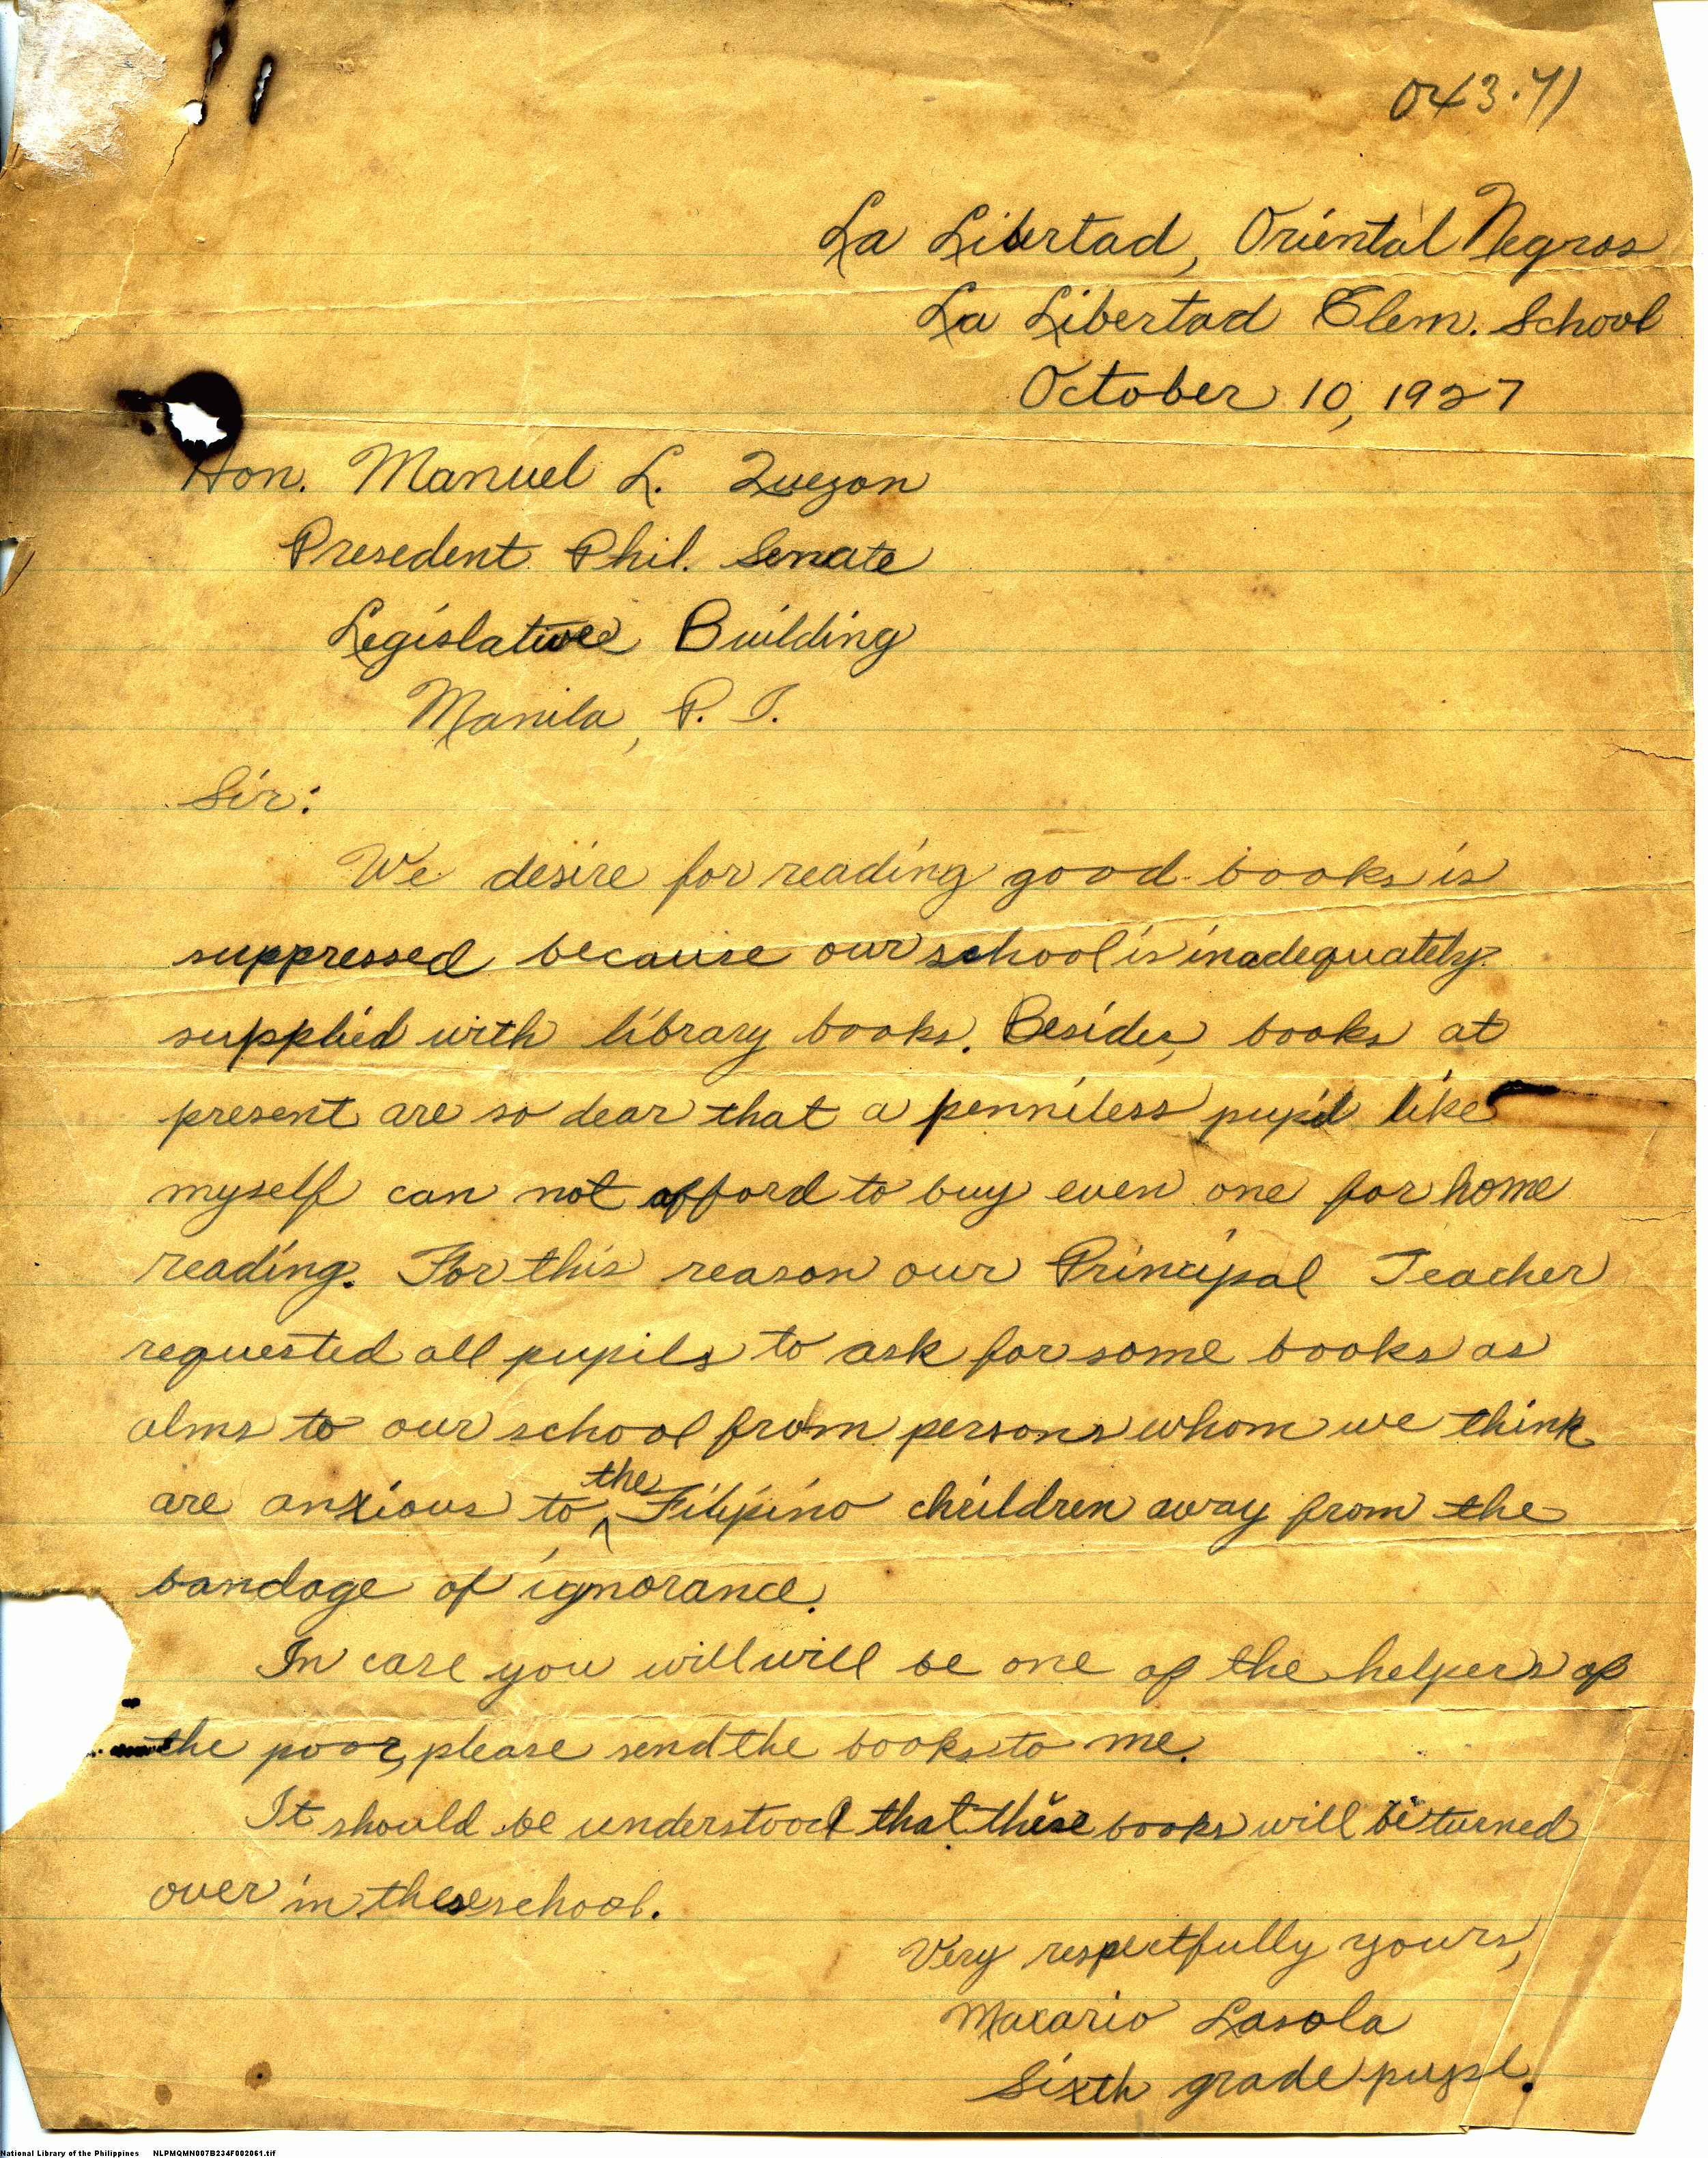 043.71
La Libertad, Oriental Negros
La Libertad Elem. School
October 10, 1927
Hon. Manuel L. Quezon
Presedent Phil. Senate
Legislative Building
Manila, P. I.
Sir:
We desire for reading good books is
suppressed because our school is inadequately
supplied with library books. Besides, books at
present are so dear that a penniless pupil like
myself can not afford to buy even one for home
reading. For this reason our Principal Teacher
requested all pupils to ask for some books as
alms to our school from persons whom we think
are anxious to the Filipino children away from the
bandage of ignorance.
In case you will will be one of the helpers of
the poor, please send the books to me.
It should be understood that these books will be turned
over in these school.
Very respectfully yours,
Macario Lasola
Sixth grade pupil.
National Library of the Philippines NLPMQMN007B234F002061.tif